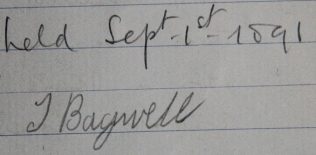 held Sept 1st 1891
J Bagwell